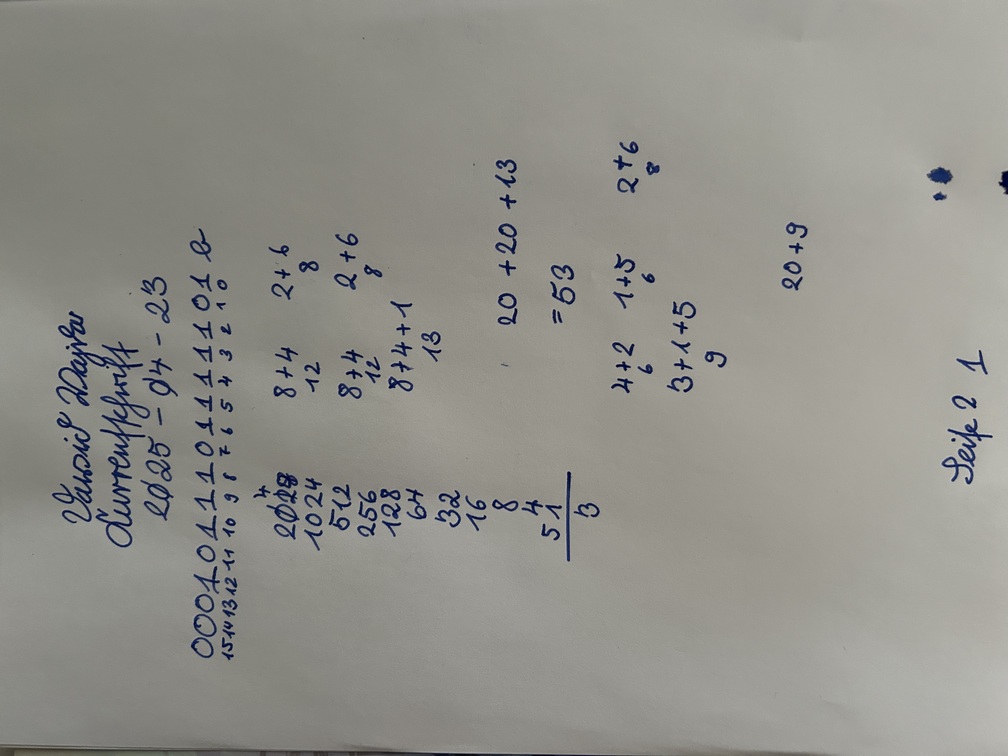 Kurrentschrift
2025-04-23
0001011101111101 b
15 14 13 12 11 10 9 8 7 6 5 4 3 2 1 0
2048 8+4 2+6
1024 12 8
512 8+4 2+6
256 12 8
128 8+4+1
64 13
32
16
8 20+20+13
4
51 =53
3
4+2 1+5 2+6
6 6 8
3+1+5
9
20+9
Seite 2 1